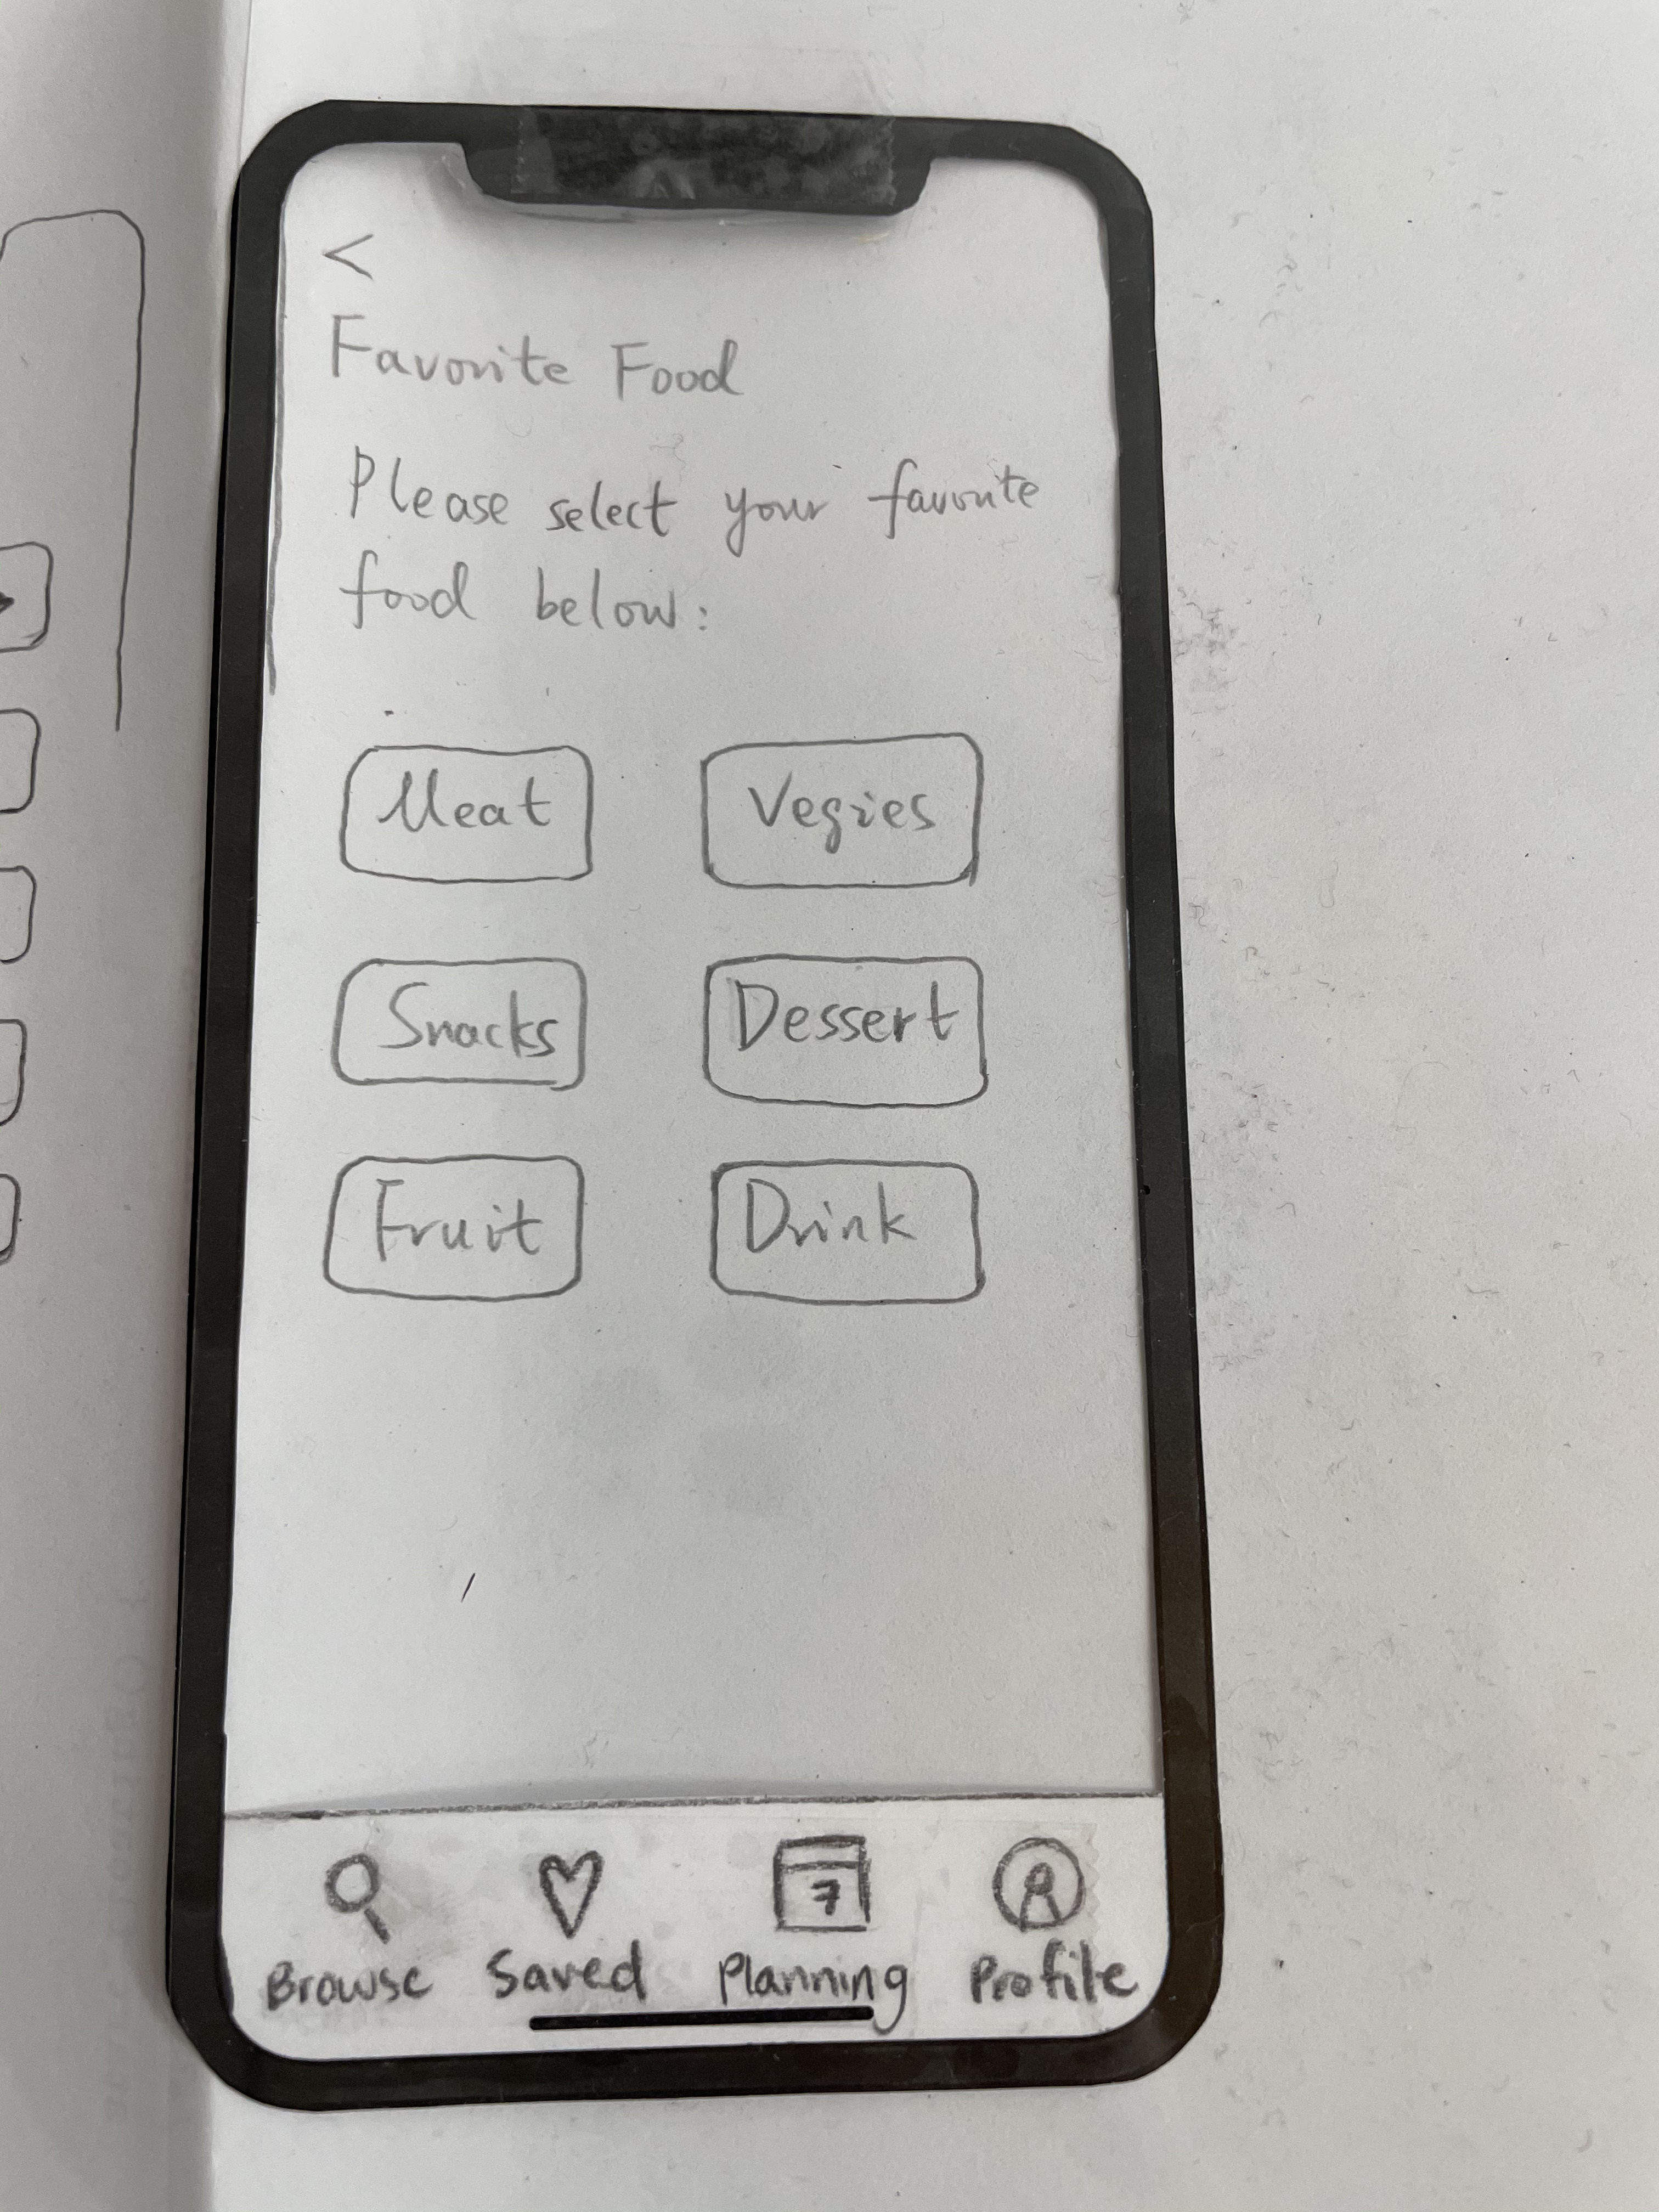 <
Favorite Food
Please select your favorite
food below:
Meat Vegies
Snacks Dessert
Fruit Drink
7
Browse Saved Planning Profile